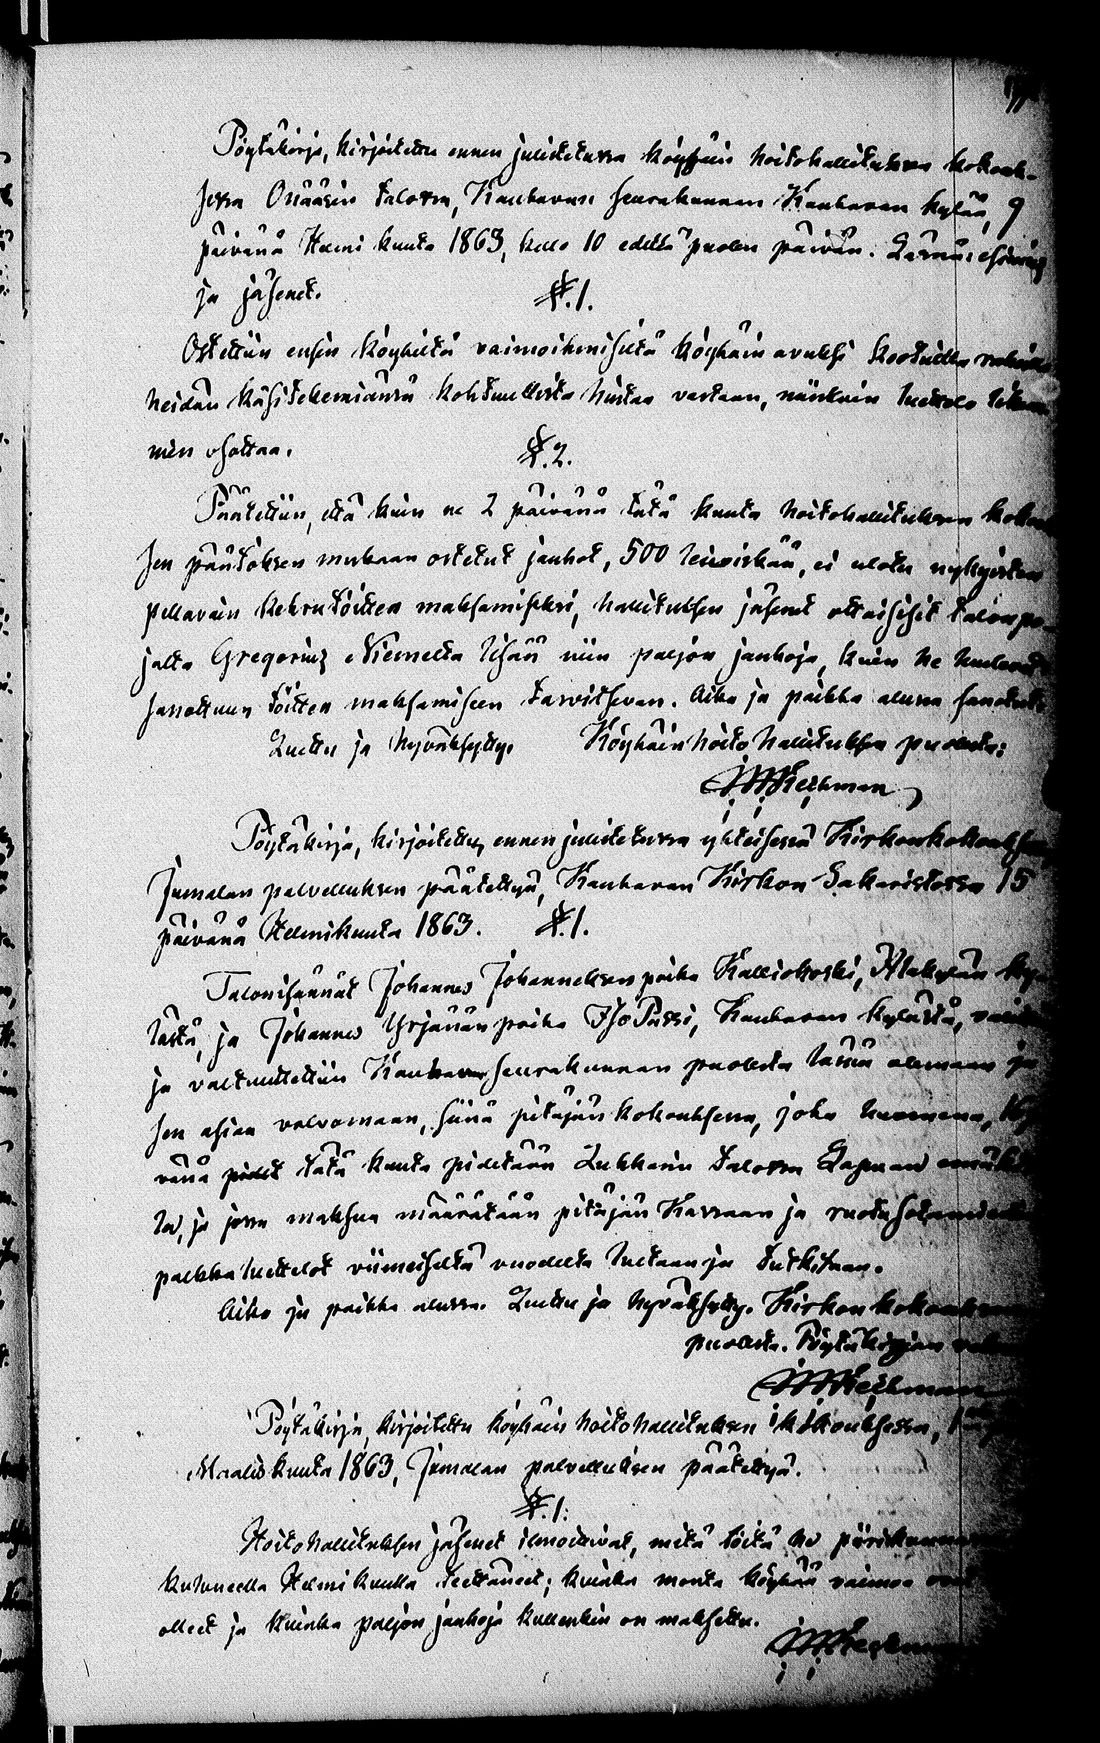 Pöytäkirja, kirjoitettu ennen julistetussa köyhäin hoitohallituksen kokouk-
sessa Onääsin talossa, Kauhavan seurakunnan Kauhavan kylää, 9
päivänä Helmi kuuta 1863, kello 10 edellä puolen päivän. Läsnä: esimies
ja jäsenet. §.1.
Ostettiin ensin köyhiltä vaimoihmisiltä köyhäin avuksi
heidän käsitekemiänsä kohtuullista hintaa vastaan, niinkuin luettelo
min osottaa. §.2.
Päätettiin, että kuin ne 2 päivänä tätä kuuta hoitohallituksen
sen päätöksen mukaan ostetut jauhot, 500 leiviskää, ei ulotu nykyisten
pellavain kehrutöitten maksamiseksi, hallituksen jäsenet ottaisisit talonpo-
jalta Gregorius Niemelta lisää niin paljon jauhoja, kuin he
sanottuun töitten maksamiseen tarvitsevan. Aika ja paikka alussa sanotut.
Luettu ja hyväksytty. Köyhäinhoito hallituksen puolesta:
Pöytäkirja, kirjoitettu, ennen julistetussa yhteisessä Kirkonkokouksessa
Jumalan palvelluksen päätettyä, Kauhavan Kirkon Sakaristossa 15
päivänä Helmikuuta 1863. §.1.
Talonisännät Johannes Johanneksen poika Kalliokoski, Alakylän ky-
lästä, ja Johannes Yrjänän poika Iso Passi, Kauhavan kylästä,
ja valtuutettiin Kauhavan seurakunnan puolesta läsnä olemaan ja
sen asiaa valvomaan, siinä pitäjän kokouksessa, joka huomenna, 16
vänä pidet tätä kuuta pidetään Lukkarin talossa Lapuan
la, ja jossa maksua määrätään pitäjän Kassaan ja
palkka luettelot viimeiseltä vuodelta luetaan ja tutkitaan.
Aika ja paikka alussa. Luettu ja hyväksytty. Kirkon kokouksen
puolesta. Pöytäkirjan
Pöytäkirja, kirjoitettu köyhäin hoitohallituksen kokouksessa, 1
Maaliskuuta 1863, Jumalan palvelluksen päätettyä.
§.1.
Hoitohallituksen jäsenet ilmoittivat, mitä töitä he
kuluneella Helmikuulla teettäneet; kuinka monta köyhää vaimoa ovat
olleet ja kuinka paljon jauhoja kullenkin on maksettu.